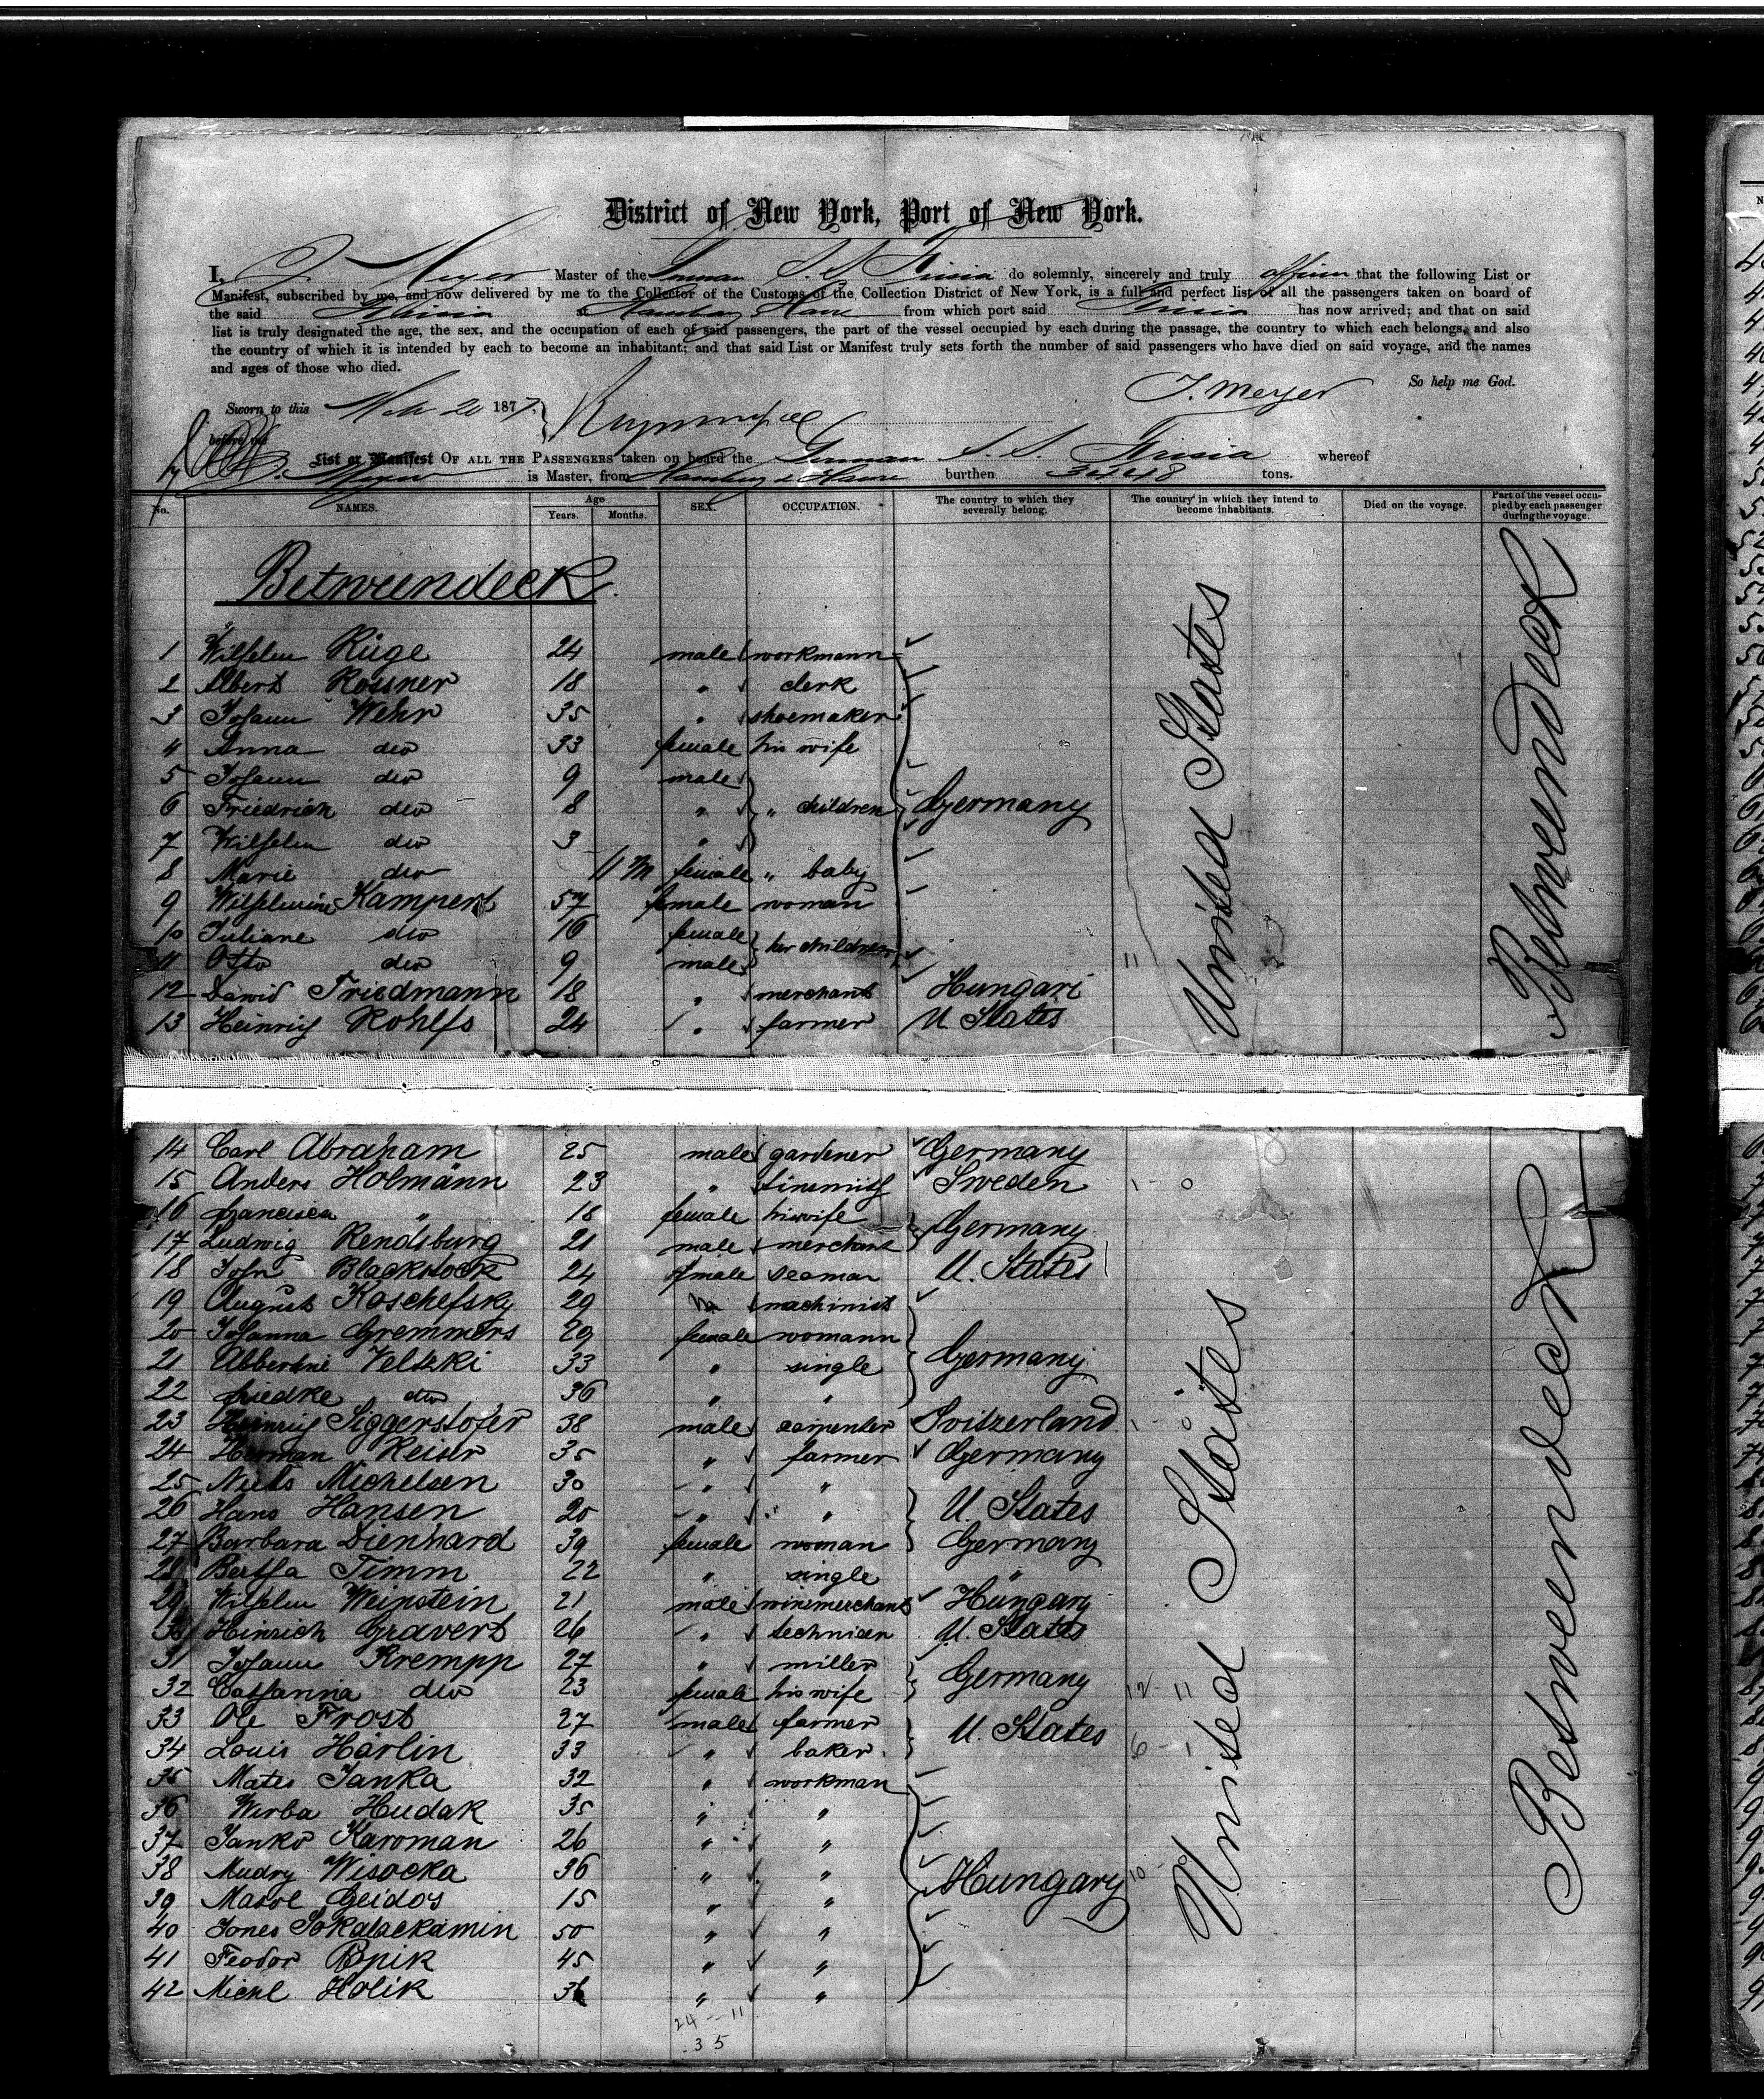 District of New York, Port of New York.
I, J. Meyer Master of the German S. S. Frisia do solemnly, sincerely and truly affirm that the following List or
Manifest, subscribed by me, and now delivered by me to the Collector of the Customs of the Collection District of New York, is a full and perfect list of all the passengers taken on board of
the said Frisia Hamburg Havre from which port said Frisia has now arrived; and that on said
list is truly designated the age, the sex, and the occupation of each of said passengers, the part of the vessel occupied by each during the passage, the country to which each belongs, and also
the country of which it is intended by each to become an inhabitant; and that said List or Manifest truly sets forth the number of said passengers who have died on said voyage, and the names
and ages of those who died.
So help me God.
J. Meyer
Sworn to this 20 1877
before me
List or Manifest OF ALL THE PASSENGERS taken on board the German S. S. Frisia whereof
Meyer is Master, from Hamburg & Havre burthen tons.
No. NAMES. Age Years. Months. SEX. OCCUPATION. The country to which they severally belong. The country in which they intend to become inhabitants. Died on the voyage. Part of the vessel occupied by each passenger during the voyage.
Betweendeck
1 Wilhelm Rüge 24 male workmann
2 Albert Rossner 18 " clerk
3 Johann Wehr 35 " shoemaker
4 Anna dto 33 female his wife
5 Johann dto 9 male
6 Friedrich dto 8 " " children Germany
7 Wilhelm dto 3 "
8 Marie dto 11 M female " baby
9 Wilhelmine Kampert 57 female woman
10 Juliane dto 16 female her children
11 Otto dto 9 male
12 David Friedmann 18 " merchant Hungari
13 Heinrich Rohlfs 24 " farmer U States
United States
Betweendeck
14 Carl Abraham 25 male gardener Germany
15 Anders Holmänn 23 " tinsmith Sweden
16 Francisca " 18 female his wife
17 Ludwig Rendsburg 21 male merchant Germany
18 John Blackstock 24 male seaman U. States
19 August Koschefsky 29 machinist
20 Johanna Gremmers 29 female womann
21 Abbertine Veltzki 33 " single Germany
22 Friedke dto 36 " "
23 Heinrich Siggerstofer 38 male carpenter Switzerland
24 Herman Reiser 35 " farmer Germany
25 Niels Michelsen 30 " "
26 Hans Hansen 20 " " U. States
27 Barbara Dienhard 39 female woman Germany
28 Bertha Timm 22 " single "
29 Wilhelm Weinstein 21 male winemerchant Hungary
30 Hinrich Gravert 26 " technician U. States
31 Johann Krempp 27 " miller
32 Catharina dto 23 female his wife Germany
33 Ole Frost 27 male farmer
34 Louis Harlin 33 " baker U. States
35 Mates Janka 32 " workman
36 Wirba Hudak 35 " "
37 Janko Karoman 26 " "
38 Mudry Wisocka 36 " " Hungary
39 Geidos 15 " "
40 Jones Sokalackamin 50 " "
41 Feodor 45 " "
42 Michl Holik 36 " "
United States
Betweendeck
24 - 11
35